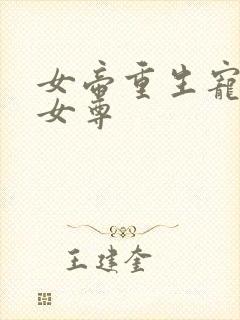 女帝重生宠
女尊
王建奎